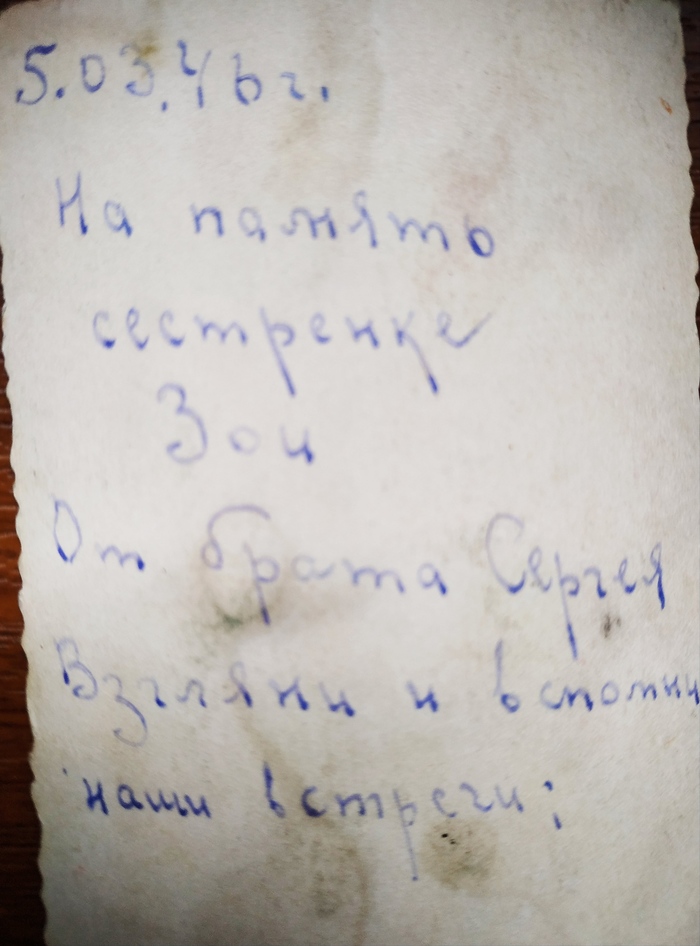 5.03.46г.
На память
сестренке
Зои
От брата Сергея
Взгляни и вспомни
наши встречи;